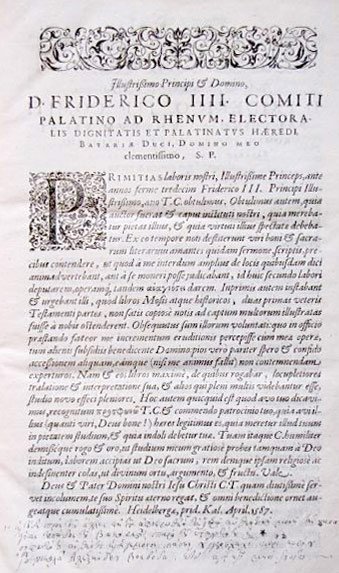 Illustrissimo Principi & Domino,
D. FRIDERICO IIII. COMITI
PALATINO AD RHENUM, ELECTORA-
LIS DIGNITATIS ET PALATINATUS HÆREDI,
BAVARIÆ DUCI, DOMINO MEO
clementissimo, S. P.
PRIMITIAS laboris nostri, Illustrissime Princeps, ante
annos ferme tredecim Friderico III. Principi Illu-
strissimo, avo T.C. obtulimus. Obtulimus autem, quia
auctor fuerat & caput instituti nostri, quia mereba-
tur pietas illius, & quia virtuti illius spectatæ debeba-
tur. Ex eo tempore non destiterunt viri boni & sacra-
rum literarum amantes quidem sermone, scriptis, pre-
cibus contendere, ut quod à me interdum amplius de locis quibusdam dici
animadvertebant, aut à se moneri posse judicabant, id huic secundo labori
deputarem, operamq; tandem darem. Inprimis autem instabant
& urgebant illi, quod libros Mosis atque historicos, duas primas veteris
Testamenti partes, non satis copiosè notis ad captum multorum illustratas
fuisse à nobis ostenderent. Obsequutus sum illorum voluntati: quo in officio
præstando fateor me incrementum eruditionis percepisse cùm mea opera,
tum alienis subsidiis benedicente Domino: pio vero pariter spero & confido
accessionem aliquam, eamque (nisi me animus fallit) non contemnendam
experturos. Nam & codices maxime, de quibus rogabar, locupletiores
tralatione & interpretatione sua, & alios qui plem multis videbantur esse,
studio novo effeci pleniores. Hoc autem quicquid est quod avo tuo dicavi-
mus, recognitum T.C. & commendo patrocinio tuo, quia avi il-
lius (quanti viri, Deus bone!) heres legitimus es, quia meretur istud tuum
in pietatem studium, & quia indoli debetur tuæ. Tuam itaque C. humiliter
demisseque rogo & oro, ut studium meum gratiosè probes tamquam à Deo
inditum, laborem accipias ut Deo sacrum, rem denique ipsam religiosè ac
indesinenter colas, ut divinam ortu, argumento, & fructu. Vale.
Deus & Pater Domini nostri Iesu Christi C. T. quàm diutissimè ser-
vet incolumem, te suo Spiritu æterno regat, & omni benedictione ornet au-
geatque cumulatissimè. Heidelbergæ, prid. Kal. April. 1587.